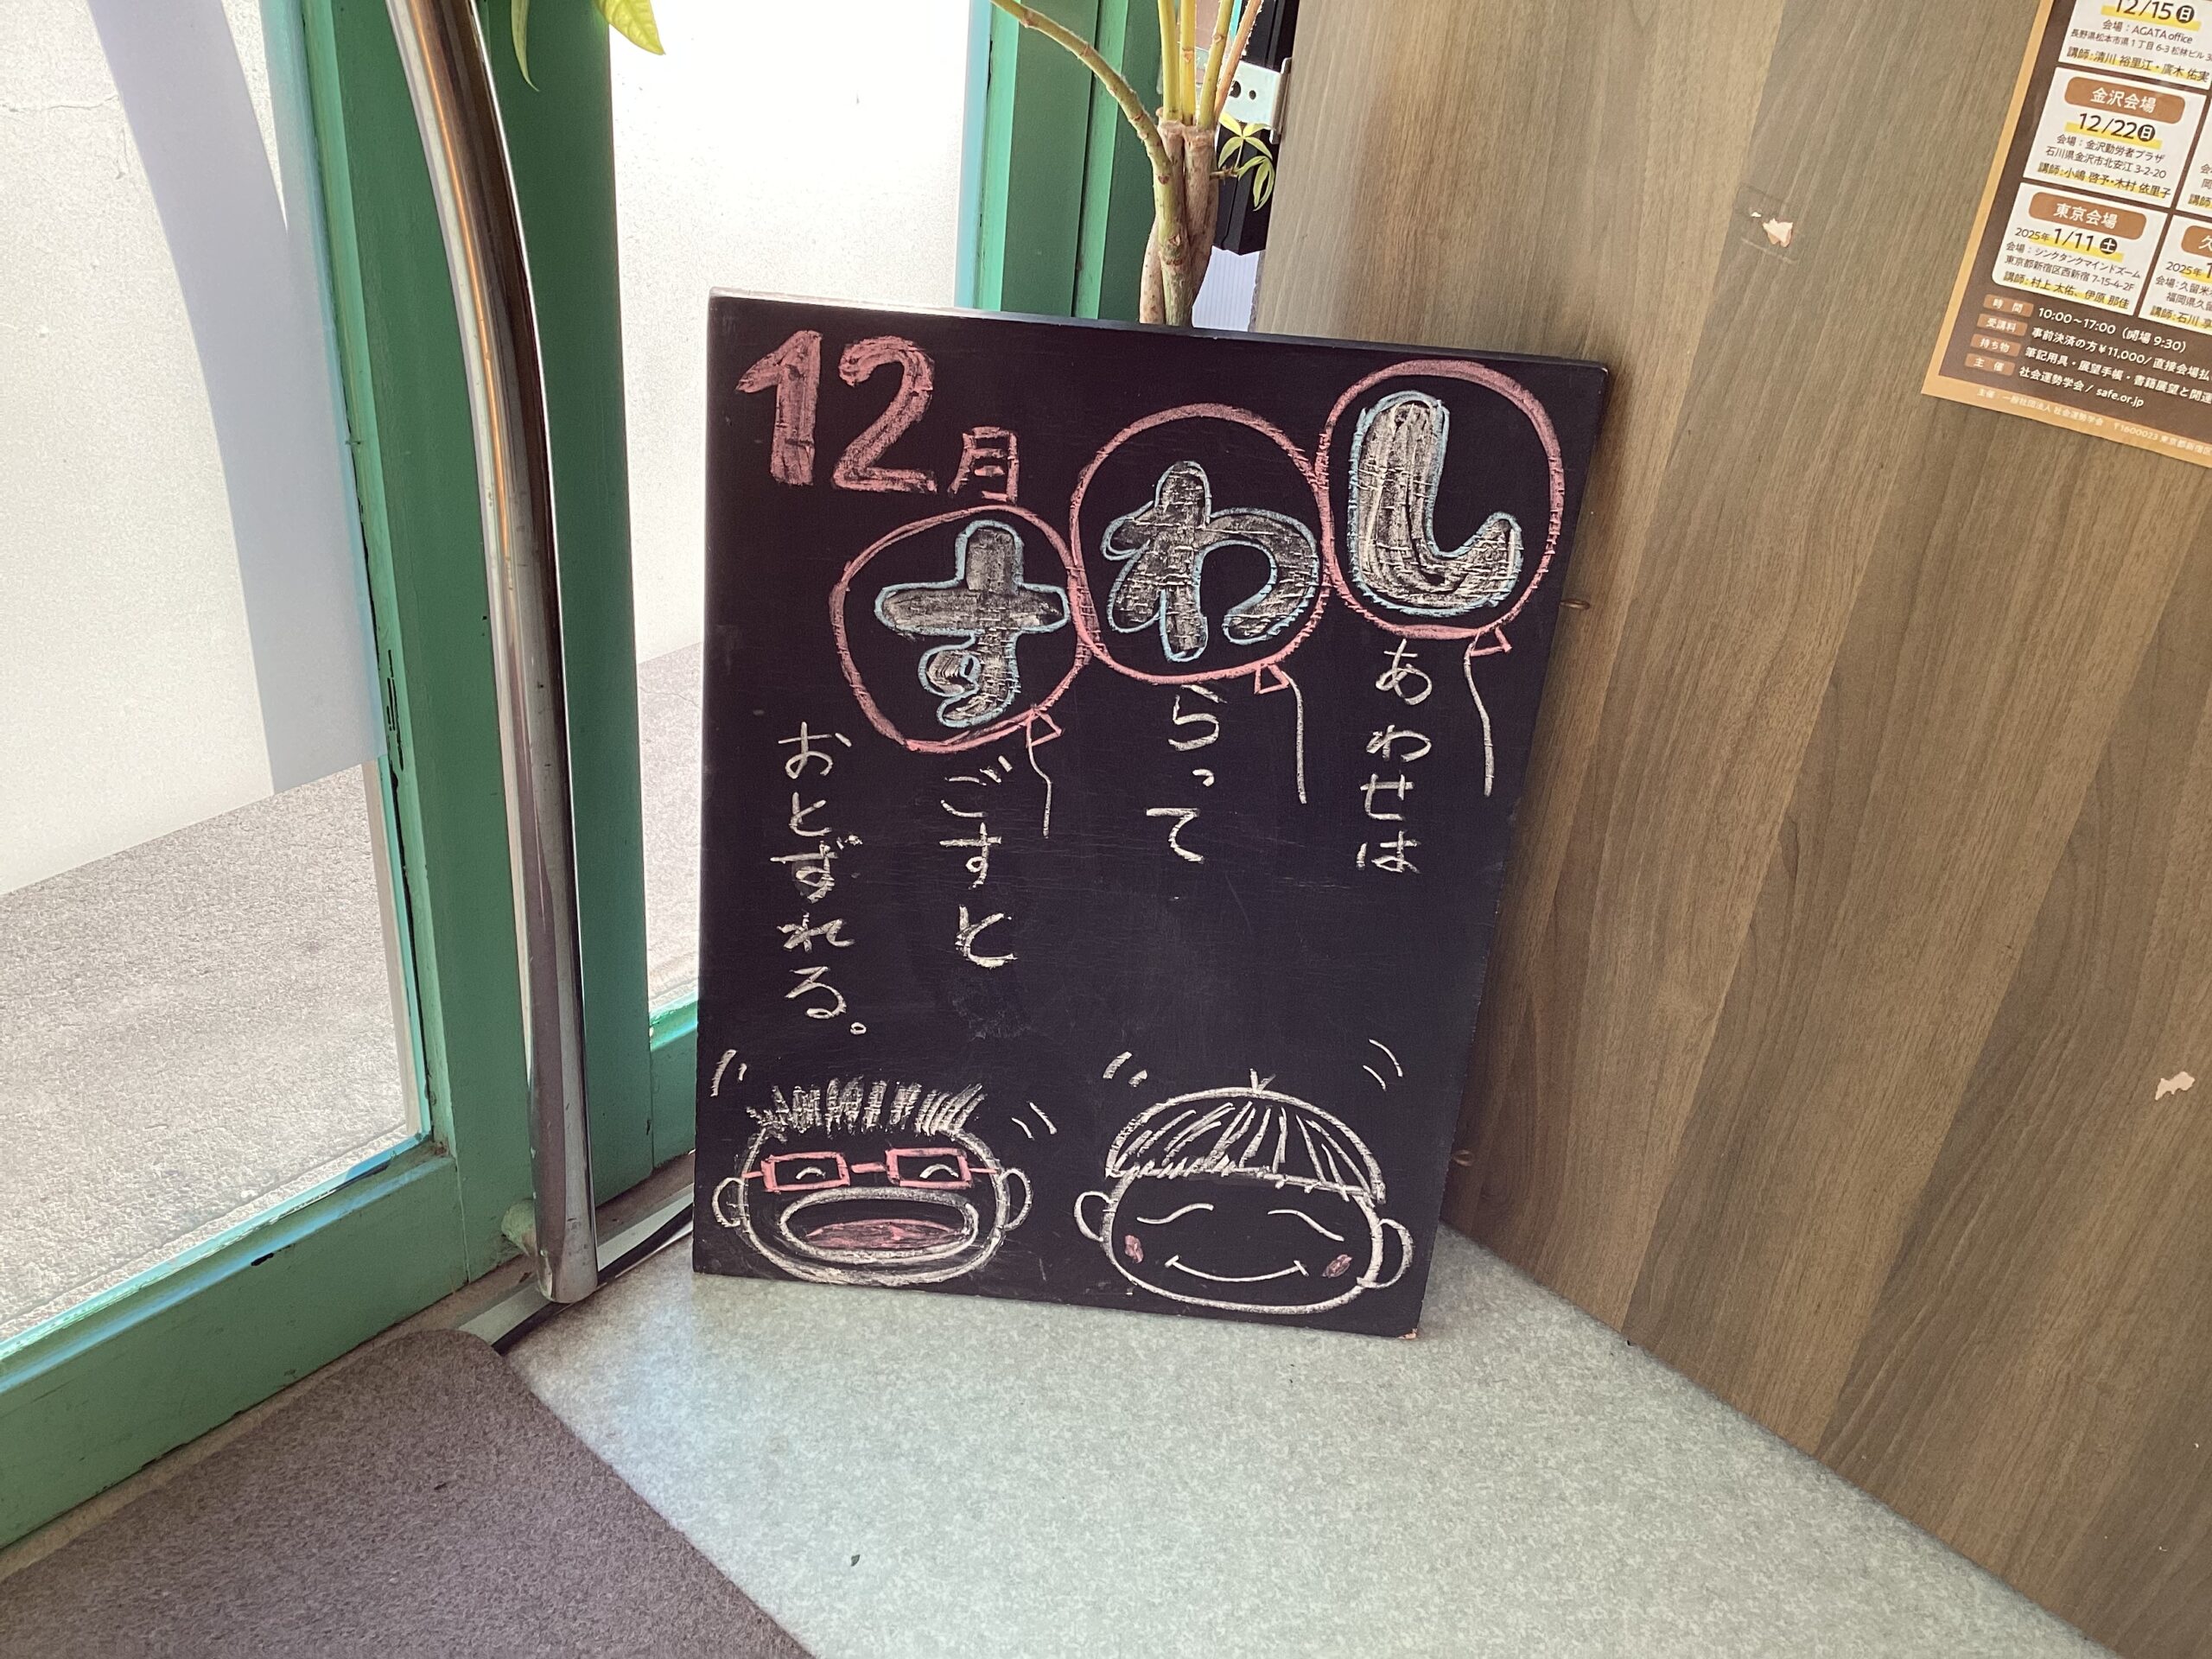 12月
しあわせは
わらって
すごすと
おとずれる。
12/15日
会場：AGATA office
長野県松本市県1丁目6-3 松林ビル
講師：清川 裕里江・廣木 佑実
金沢会場
12/22日
会場：金沢勤労者プラザ
石川県金沢市北安江3-2-20
講師：小嶋 啓予・木村 依里子
東京会場
2025年1/11土
会場：シンクタンクマインドズーム
東京都新宿区西新宿7-15-4-2F
講師：村上 太佑、伊原 那佳
2025年
会場：久留米
福岡県久留
講師：石川
時間 10:00～17:00（開場 9:30）
受講料 事前決済の方￥11,000/ 直接会場払
持ち物 筆記用具・展望手帳・書籍展望と開運
主催 社会運勢学会 / safe.or.jp
主催：一般社団法人 社会運勢学会 〒1600023 東京都新宿区